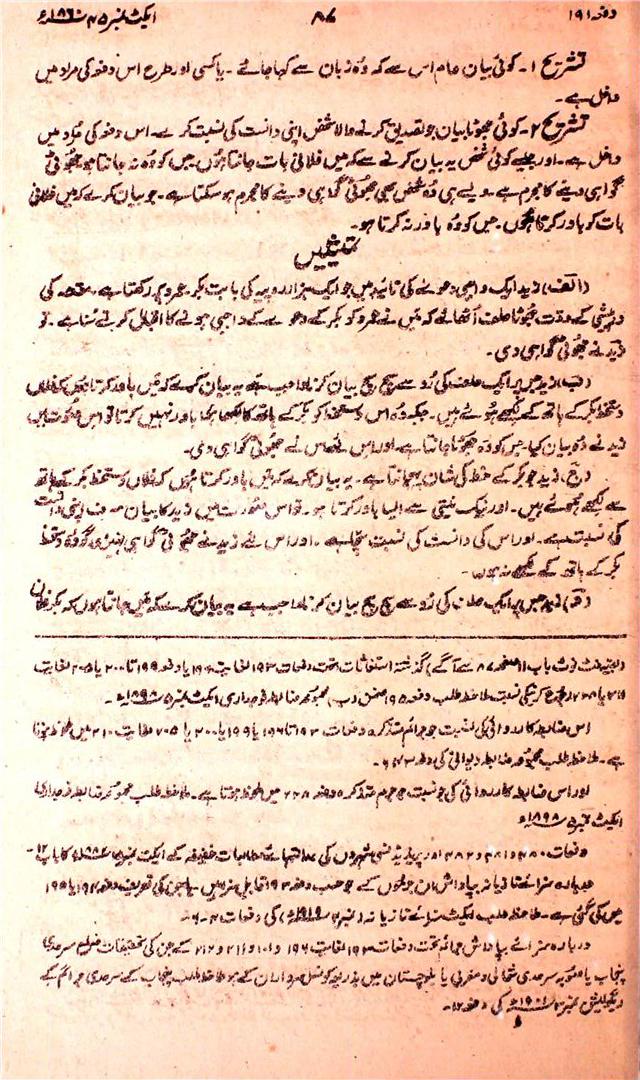 دفعہ ۱۹۱
۸۷
ایکٹ نمبر ۴۵ ۱۸۶۰ء
تشریح ۱۔ کوئی بیان عام اس سے کہ وہ زبان سے کہا جائے۔ یا کسی اور طرح اس دفعہ کی مراد میں
داخل ہے۔
تشریح ۲۔ کوئی جھوٹا بیان جو تصدیق کرنے والا شخص اپنی دانست کی نسبت کرے۔ اس دفعہ کی مراد میں
داخل ہے۔ اور جیسے کوئی شخص یہ بیان کرنے سے کہ میں فلانی بات جانتا ہوں جس کو وہ نہ جانتا ہو جھوٹی
گواہی دینے کا مجرم ہے۔ ویسے ہی وہ شخص بھی جھوٹی گواہی دینے کا مجرم ہو سکتا ہے۔ جو بیان کرے کہ میں فلانی
بات کو باور کرتا ہوں۔ جس کو وہ باور نہ کرتا ہو۔
تمثیلیں
(الف) زید ایک واجبی دعوے کی تائید میں جو ایک ہزار روپیہ کی بابت بکر عمرو پر رکھتا ہے۔ مقدمہ کی
کے وقت جھوٹا حلف اٹھائے کہ میں نے عمرو کو بکر کے دعوے کے واجبی ہونے کا اقبال کرتے سنا ہے۔ تو
زید نے جھوٹی گواہی دی۔
(ب) زید جس پر ایک حلف کی رو سے سچ سچ بیان کرنا واجب ہے یہ بیان کرے کہ میں باور کرتا ہوں کہ فلاں
دستخط بکر کے ہاتھ کے لکھے ہوئے ہیں۔ جبکہ وہ اس دستخط کو بکر کے ہاتھ کا لکھا ہوا باور نہیں کرتا تو اس صورت میں
زید نے وہ بیان کیا۔ جس کو وہ جھوٹا جانتا ہے۔ اور اس لئے اس نے جھوٹی گواہی دی۔
(ج) زید جو بکر کے خط کی شان پہچانتا ہے۔ یہ بیان کرے کہ میں باور کرتا ہوں کہ فلاں دستخط بکر کے ہاتھ
سے لکھے ہوئے ہیں۔ اور نیک نیتی سے ایسا باور کرتا ہو۔ تو اس صورت میں زید کا بیان صرف اپنی دانست
کی نسبت ہے۔ اور اس کی دانست کی نسبت سچا ہے۔ اور اس لئے زید نے جھوٹی گواہی نہیں دی گو وہ دستخط
بکر کے ہاتھ کے لکھے نہ ہوں۔
(د) زید جس پر ایک حلف کی رو سے سچ سچ بیان کرنا واجب ہے یہ بیان کرے کہ میں جانتا ہوں کہ بکر فلاں
فٹ نوٹ باب ۱۱ صفحہ ۸۷ سے آگے) گذشتہ استغاثات تحت دفعات ۱۹۳ لغایت ۱۹۶ یا دفعہ ۱۹۹ تا ۲۰۰ یا ۲۰۵ لغایت
نسبت ملاحظہ طلب دفعہ ۱۹۵ ضمن (ب) مجموعہ ضابطہ فوجداری ایکٹ نمبر ۵ ۱۸۹۸ء۔
اس ضابطہ کارروائی کی نسبت جو جرائم متذکرہ دفعات ۱۹۳ تا ۱۹۶ یا ۱۹۹ یا ۲۰۰ یا ۲۰۵ لغایت ۲۱۰ میں ملحوظ ہوتا
ہے۔ ملاحظہ طلب مجموعہ ضابطہ دیوانی کی دفعہ ۶۴۳۔
اور اس ضابطہ کارروائی کی جو نسبت جرم متذکرہ دفعہ ۲۲۸ میں ملحوظ ہوتا ہے۔ ملاحظہ طلب مجموعہ ضابطہ فوجداری
ایکٹ نمبر ۵ ۱۸۹۸ء
دفعات ۴۸۰ و ۴۸۱ و ۴۸۲ اور پریذیڈنسی شہروں کی عدالتہائے مطالبات خفیفہ کے ایکٹ نمبر ۱۵ ۱۸۸۲ء کا باب ۱۲۔
دربارہ سزائے تازیانہ بپاداش ان جرموں کے جو حسب دفعہ ۱۹۳ قابل سزا ہیں۔ یا جن کی تعریف دفعہ ۱۹۴ یا ۱۹۵
میں کی گئی ہے۔ ملاحظہ طلب ایکٹ سزائے تازیانہ (نمبر ۴ ۱۹۰۹ء) کی دفعات ۴۔۶۔
دربارہ سزائے بپاداش جرائم تحت دفعات ۱۹۳ لغایت ۱۹۶ و ۲۰۱ و ۲۱۱ و ۲۱۲ کے جن کی تحقیقات ضلع سرحدی
پنجاب یا صوبہ سرحدی شمالی و مغربی یا بلوچستان میں بذریعہ کونسل سرداران کے ہو ملاحظہ طلب پنجاب کے سرحدی جرائم کے
ریگولیشن نمبر ۳ ۱۹۰۱ء کی دفعہ ۱۲۔